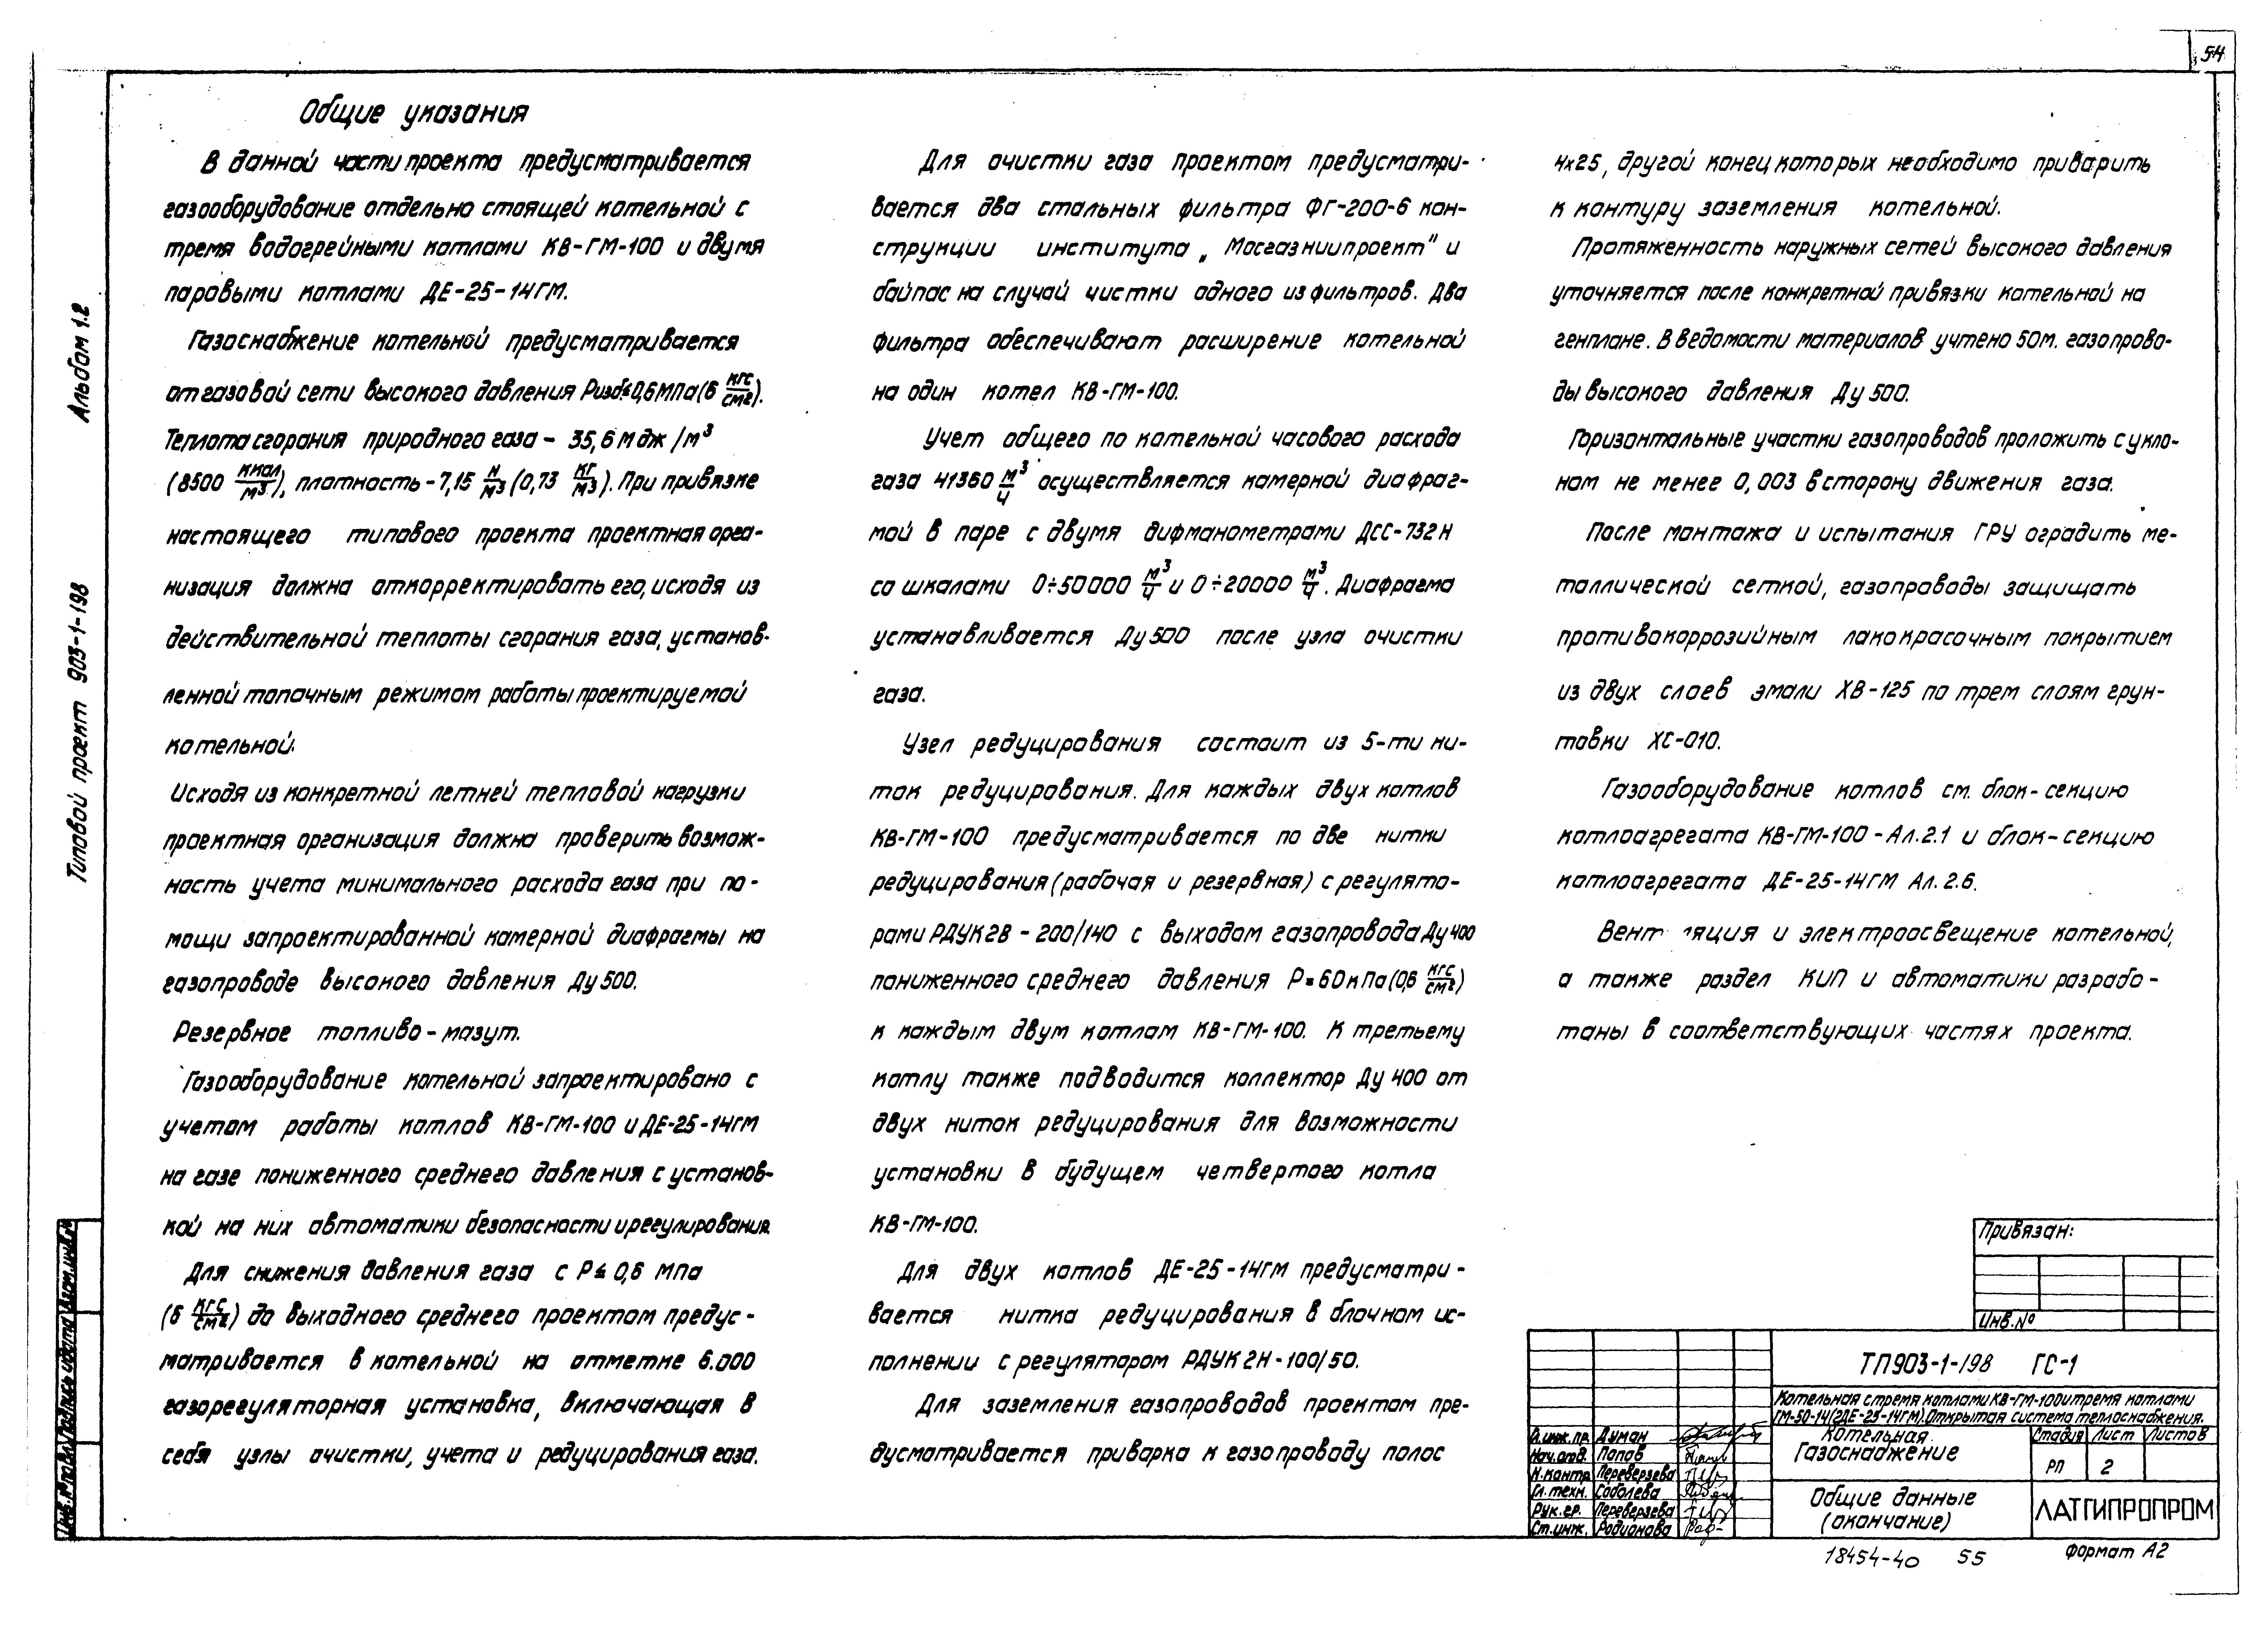 54
Альбом 1.2
Типовой проект 903-1-198
Общие указания
В данной части проекта предусматривается
газооборудование отдельно стоящей котельной с
тремя водогрейными котлами КВ-ГМ-100 и двумя
паровыми котлами ДЕ-25-14ГМ.
Газоснабжение котельной предусматривается
от газовой сети высокого давления Ризб≤0,6МПа(6 кгс/см2).
Теплота сгорания природного газа - 35,6 мдж/м³
(8500 ккал/м3), плотность - 7,15 н/м3 (0,73 кг/м3). При привязке
настоящего типового проекта проектная орга-
низация должна откорректировать его, исходя из
действительной теплоты сгорания газа, установ-
ленной топочным режимом работы проектируемой
котельной.
Исходя из конкретной летней тепловой нагрузки
проектная организация должна проверить возмож-
ность учета минимального расхода газа при по-
мощи запроектированной камерной диафрагмы на
газопроводе высокого давления Ду 500.
Резервное топливо - мазут.
Газооборудование котельной запроектировано с
учетом работы котлов КВ-ГМ-100 и ДЕ-25-14ГМ
на газе пониженного среднего давления с установ-
кой на них автоматики безопасности и регулирования.
Для снижения давления газа с Р≤ 0,6 МПа
(6 кгс/см2) до выходного среднего проектом предус-
матривается в котельной на отметке 6.000
газорегуляторная установка, включающая в
себя узлы очистки, учета и редуцирования газа.
Для очистки газа проектом предусматри-
вается два стальных фильтра ФГ-200-6 кон-
струкции института „Мосгазниипроект" и
байпас на случай чистки одного из фильтров. Два
фильтра обеспечивают расширение котельной
на один котел КВ-ГМ-100.
Учет общего по котельной часового расхода
газа 41360 м³/ч осуществляется камерной диафраг-
мой в паре с двумя дифманометрами ДСС-732Н
со шкалами 0÷50000 м³/ч и 0÷20000 м³/ч. Диафрагма
устанавливается Ду 500 после узла очистки
газа.
Узел редуцирования состоит из 5-ти ни-
ток редуцирования. Для каждых двух котлов
КВ-ГМ-100 предусматривается по две нитки
редуцирования (рабочая и резервная) с регулято-
рами РДУК2В - 200/140 с выходом газопровода Ду 400
пониженного среднего давления Р=60кПа(0,6 кгс/см2)
к каждым двум котлам КВ-ГМ-100. К третьему
котлу также подводится коллектор Ду 400 от
двух ниток редуцирования для возможности
установки в будущем четвертого котла
КВ-ГМ-100.
Для двух котлов ДЕ-25-14ГМ предусматри-
вается нитка редуцирования в блочном ис-
полнении с регулятором РДУК2Н-100/50.
Для заземления газопроводов проектом пре-
дусматривается приварка к газопроводу полос
4х25, другой конец которых необходимо приварить
к контуру заземления котельной.
Протяженность наружных сетей высокого давления
уточняется после конкретной привязки котельной на
генплане. В ведомости материалов учтено 50м. газопрово-
ды высокого давления Ду 500.
Горизонтальные участки газопроводов проложить с укло-
ном не менее 0,003 в сторону движения газа.
После монтажа и испытания ГРУ оградить ме-
таллической сеткой, газопроводы защищать
противокоррозийным лакокрасочным покрытием
из двух слоев эмали ХВ-125 по трем слоям грун-
товки ХС-010.
Газооборудование котлов см. блок-секцию
котлоагрегата КВ-ГМ-100-Ал.2.1 и блок-секцию
котлоагрегата ДЕ-25-14ГМ Ал.2.6.
Вент ляция и электроосвещение котельной,
а также раздел КИП и автоматики разрабо-
таны в соответствующих частях проекта.
Привязан:
Инв.№
ТП903-1-198 ГС-1
Котельная с тремя котлами КВ-ГМ-100 и тремя котлами
ГМ-50-14(2ДЕ-25-14ГМ).Открытая система теплоснабжения.
Гл.инж.пр. Думан
Нач.отд. Попов
Н.контр Переверзева
Гл.техн. Соболева
Рук.гр. Переверзева
Ст.инж. Родионова
Котельная.
Газоснабжение
Стадия Лист Листов
РП 2
Общие данные
(окончание)
ЛАТГИПРОПРОМ
Инв.№подл. Подпись и дата Взам.инв.№
18454-40 55
Формат А2